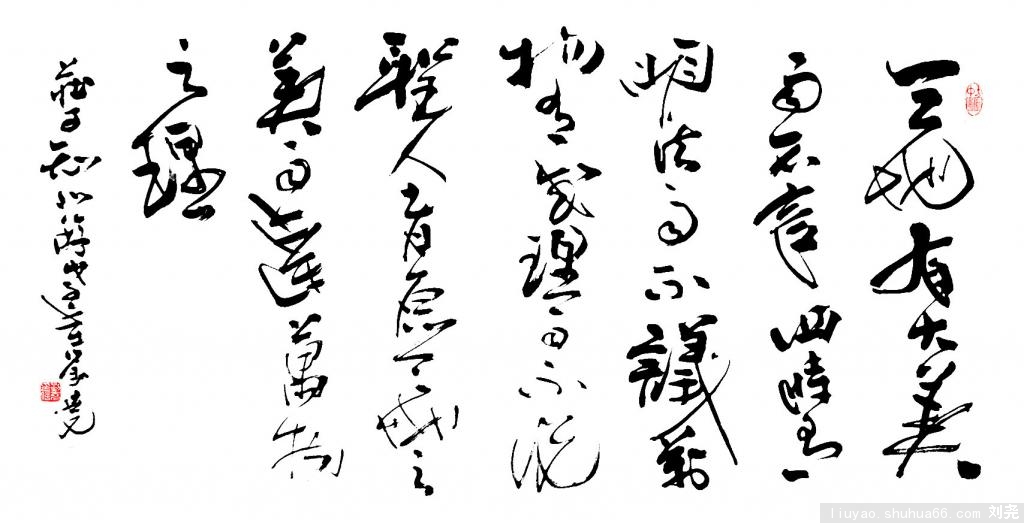 天地有大美
而不言四時有
明法而不議萬
物有成理而不說
聖人者原天地之
美而達萬物
之理
莊子知北游
liuyao.shuhua66.com 刘尧